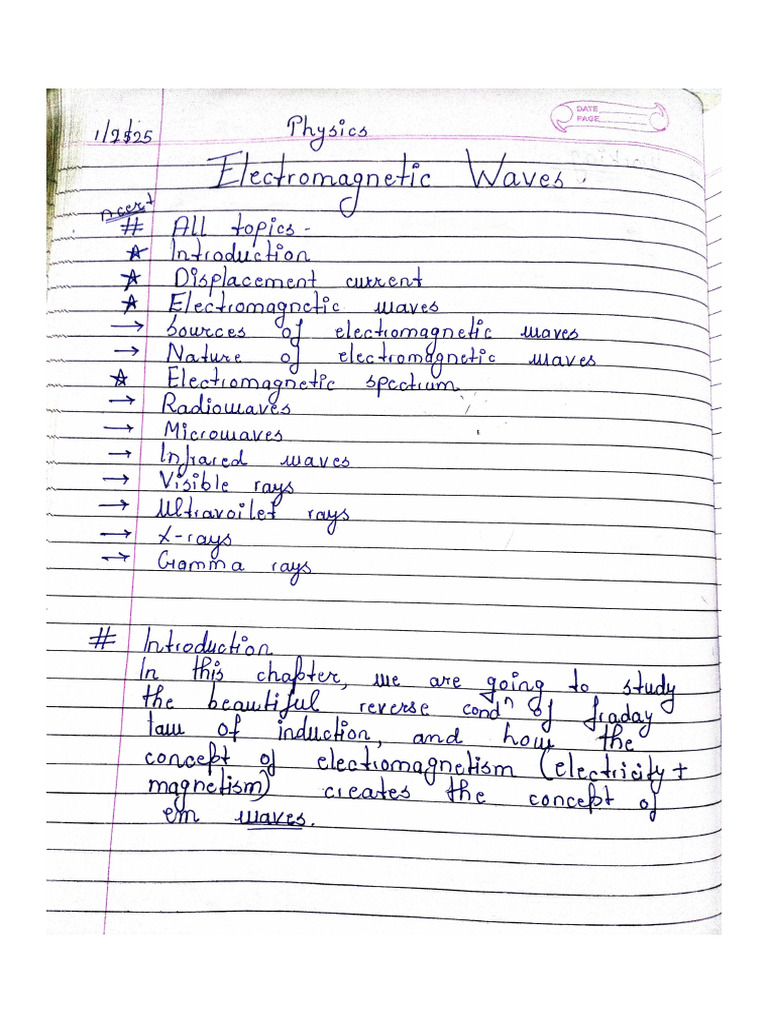 DATE
PAGE
1/2/25 Physics
Electromagnetic Waves
ncert
# All topics -
☆ Introduction
☆ Displacement current
☆ Electromagnetic waves
→ Sources of electromagnetic waves
→ Nature of electromagnetic waves
☆ Electromagnetic spectrum
→ Radiowaves
→ Microwaves
→ Infrared waves
→ Visible rays
→ Ultravoilet rays
→ X-rays
→ Gamma rays
# Introduction
In this chapter, we are going to study
the beautiful reverse condⁿ of fraday
law of induction, and how the
concept of electromagnetism (electricity +
magnetism) creates the concept of
em waves.